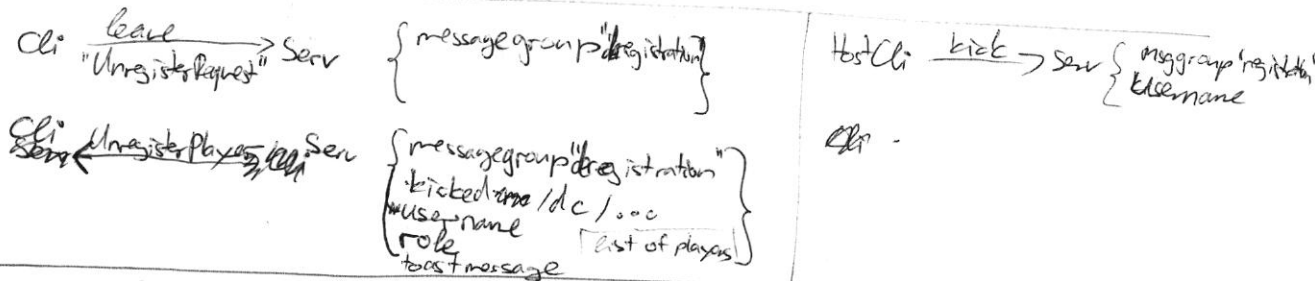 Cli leave Serv { messagegroup "registration" }
"UnregisterRequest"
Cli UnregisterPlayer Serv { messagegroup "registration"
kicked /dc /...
username
role list of players }
toastmessage
HostCli kick Serv { msggroup "registration"
username
Cli .